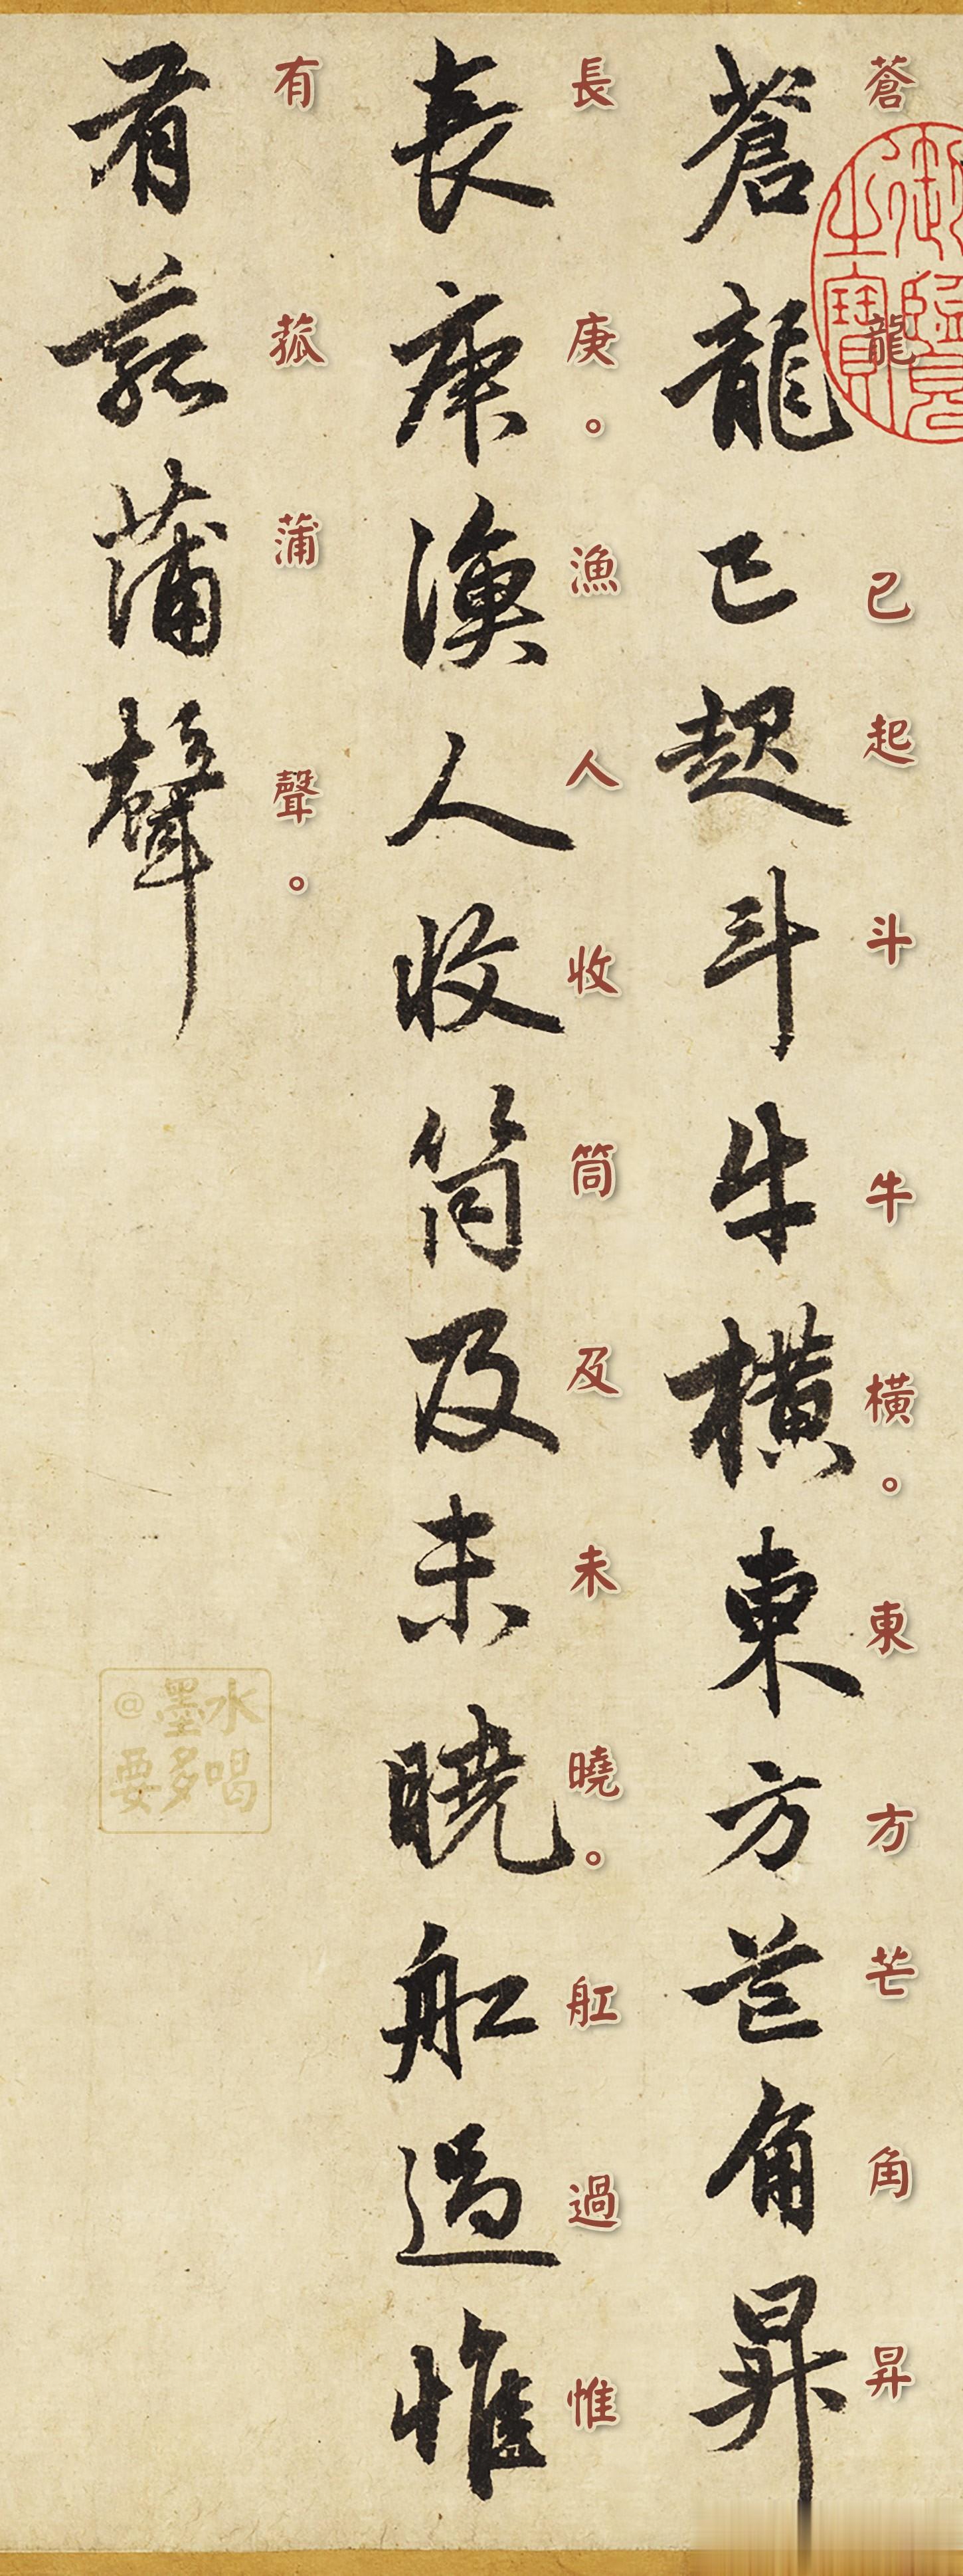 蒼龍已起斗牛橫東方芒角昇
蒼龍已起斗牛橫。東方芒角昇
長庚漁人收筒及未曉舡過惟
長庚。漁人收筒及未曉。舡過惟
有菰蒲聲
有菰蒲聲。
御覽之寶
@墨水
要多喝